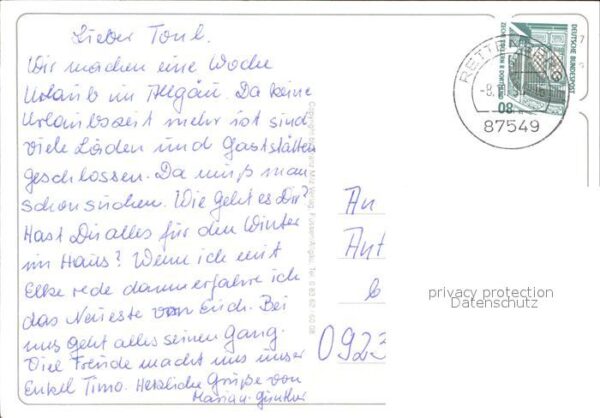 Lieber Toni.
Wir machen eine Woche
Urlaub im Allgäu. Da keine
Urlaubszeit mehr ist sind
viele Läden und Gaststätten
geschlossen. Da muß man
schon suchen. Wie geht es Dir?
Hast Du alles für den Winter
im Haus? Wenn ich mit
Elke rede dann erfahre ich
das Neueste von Euch. Bei
uns geht alles seinen Gang.
Viel Freude macht uns unser
Enkel Timo. Herzliche Grüße von
Günther
An
Ant
0923
RETTENBERG
-8.
87549
08
DEUTSCHE BUNDESPOST
privacy protection
Datenschutz